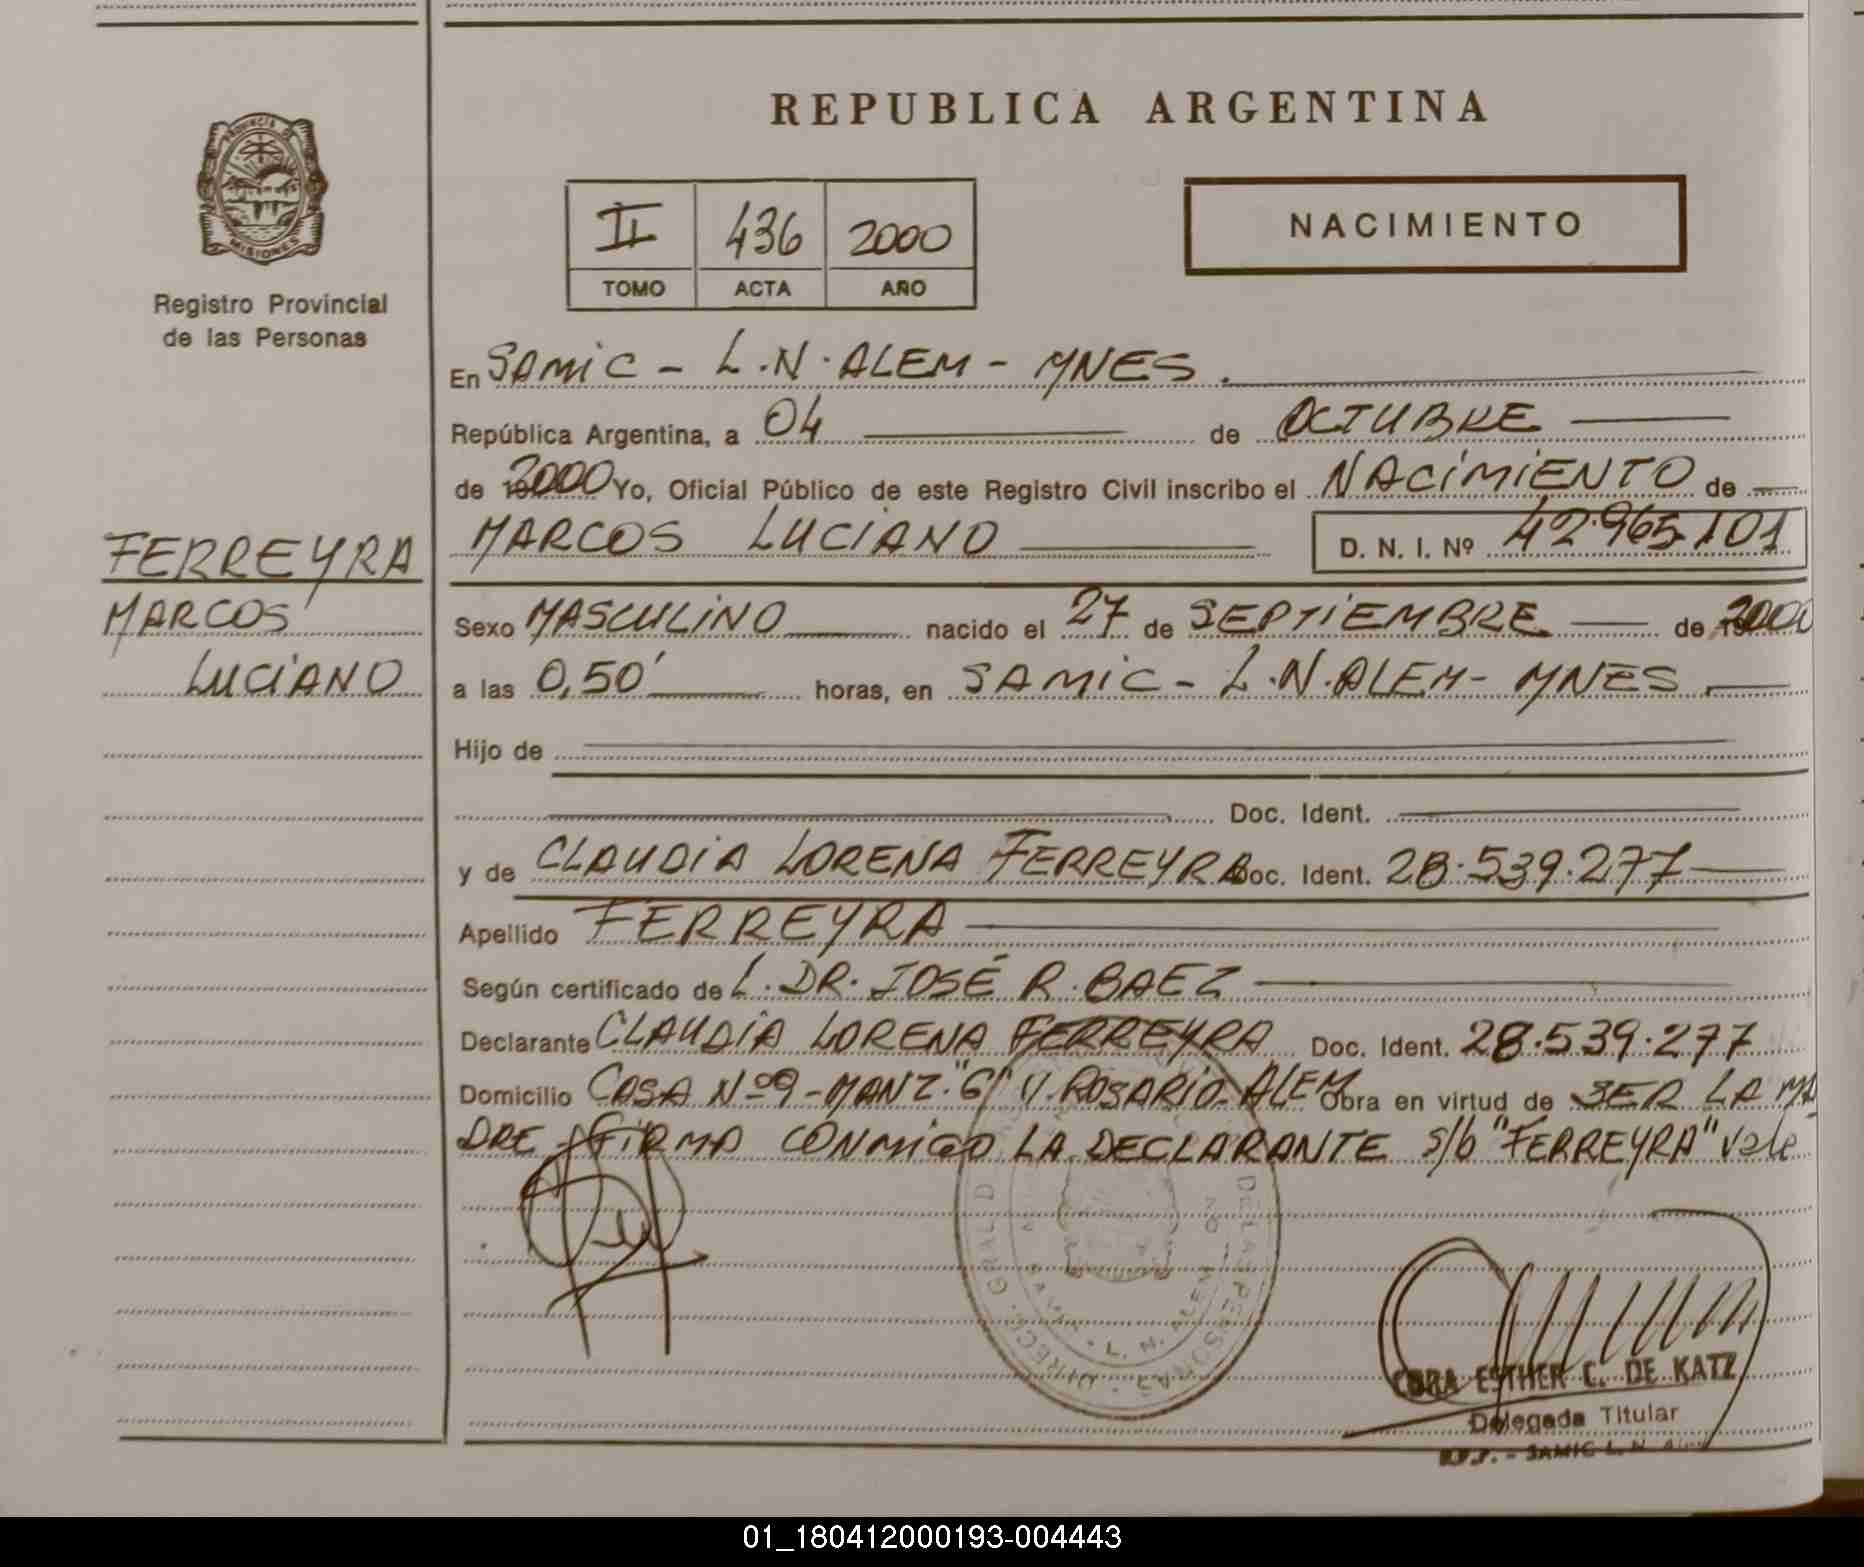 REPUBLICA ARGENTINA
PROVINCIA DE
MISIONES
Registro Provincial
de las Personas
II 436 2000
TOMO ACTA AÑO
NACIMIENTO
En SAMIC - L.N. ALEM - MNES.
República Argentina, a 04 de OCTUBRE
de 2000 Yo, Oficial Público de este Registro Civil inscribo el NACIMIENTO de
FERREYRA
MARCOS
LUCIANO
MARCOS LUCIANO D. N. I. Nº 42.965.101
Sexo MASCULINO nacido el 27 de SEPTIEMBRE de 2000
a las 0,50' horas, en SAMIC - L.N. ALEM - MNES.
Hijo de
Doc. Ident.
y de CLAUDIA LORENA FERREYRA Doc. Ident. 28.539.277
Apellido FERREYRA
Según certificado de L. DR. JOSÉ R. BAEZ
Declarante CLAUDIA LORENA FERREYRA Doc. Ident. 28.539.277
Domicilio CASA Nº 9 - MANZ. "G" V. ROSARIO - ALEM Obra en virtud de SER LA MA
DRE - FIRMA CONMIGO LA DECLARANTE s/b "FERREYRA" Vale
DIRECC. GRAL D DE LAS PERSONAS
L. N. ALEM
CORA ESTHER C. DE KATZ
Delegada Titular
R.P.P. - SAMIC L. N. Alem
01_180412000193-004443